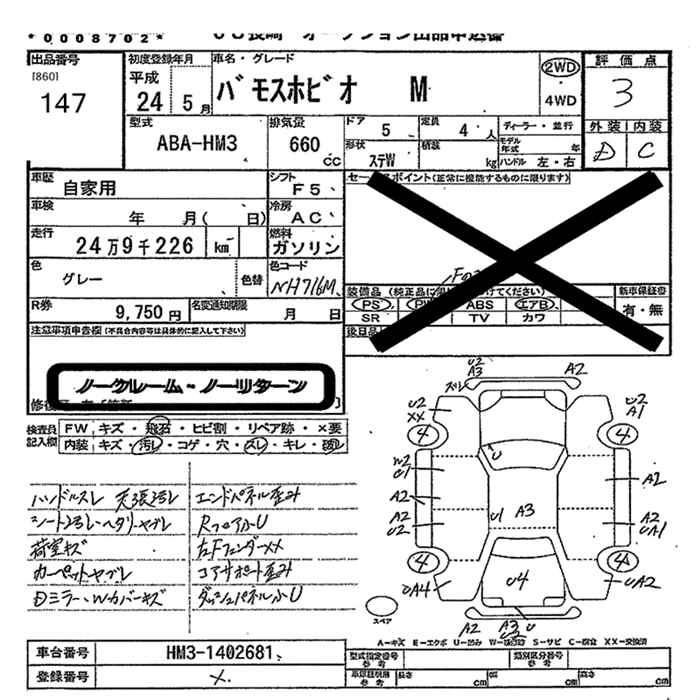 *0008702*
出品番号
[860]
147
初度登録年月
平成
24 5月
車名・グレード
バモスホビオ M
2WD
・
4WD
評価点
3
外装 内装
D C
型式
ABA-HM3
排気量
660
CC
ドア
5
定員
4 人
ディーラー・並行
形状
ステW
積載
kg
モデル年式 年
ハンドル 左・右
車歴
自家用
シフト
F5
車検
年 月( 日)
冷房
AC
走行
24万9千226 km
燃料
ガソリン
色
グレー
色替
色コード
NH716M
R券
9,750円
名変通知期限
月 日
セールスポイント(正常に機能するものに限ります)
装備品
PS ABS エアB
SR TV カワ
新車保証書
有・無
注意事項申告欄(不具合内容等は具体的に記入して下さい)
ノークレーム・ノーリターン
検査員記入欄
FW キズ・飛石・ヒビ割・リペア跡・×要
内装 キズ・汚レ・コゲ・穴・スレ・キレ・破レ
ハンドルスレ 天張汚レ
シート汚レ・ヘタリ・ヤブレ
荷室キズ
カーペットヤブレ
エンドパネル歪み
RフロアふU
左FフェンダーXX
コアサポート歪み
ダッシュパネルふU
U2
A3
A2
U2
XX
4
U2
A1
4
W2
A2
A2
U2
U
U1
A3
A1
A2
UA1
4
UA4
U4
4
UA2
スペア
A2
A3
U
A-キズ E-エクボ U-凹み W-波修跡 S-サビ C-腐食 XX-交換済
車台番号
HM3-1402681
登録番号
×
型式指定番号
参考
類別区分番号
参考
長さ cm 幅 cm 高さ cm